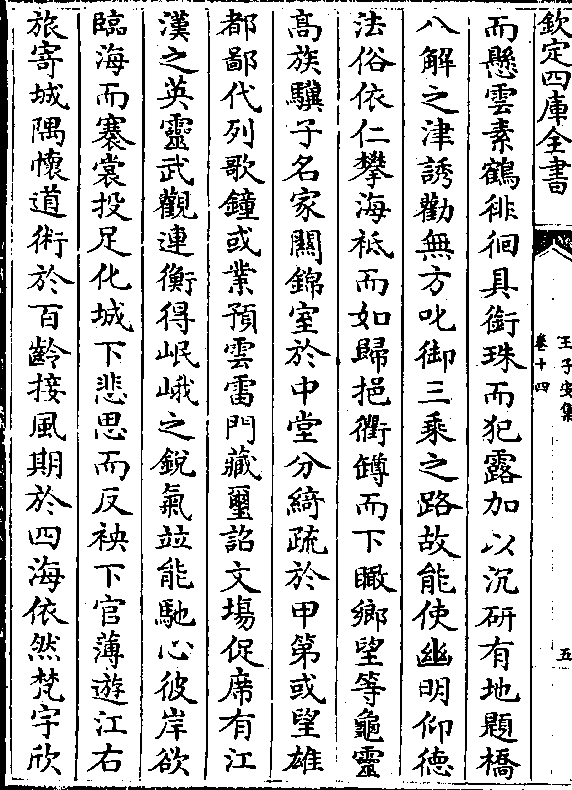 欽定四庫全書
王子安集
卷十四
五
而懸雲素鶴徘徊具銜珠而犯露加以沉研有地題橋
八解之津誘勸無方叱御三乘之路故能使幽明仰德
法俗依仁攀海袛而如歸挹衢罇而下瞰鄉望等龜靈
髙族驥子名家闢錦室於中堂分綺疏於甲第或望雄
都鄙代列歌鐘或業預雲雷門藏璽詔文場促席有江
漢之英靈武觀連衡得岷峨之銳氣竝能馳心彼岸欲
臨海而褰裳投足化城下悲思而反袂下官薄遊江右
旅寄城隅懷道術於百齡接風期於四海依然梵宇欣